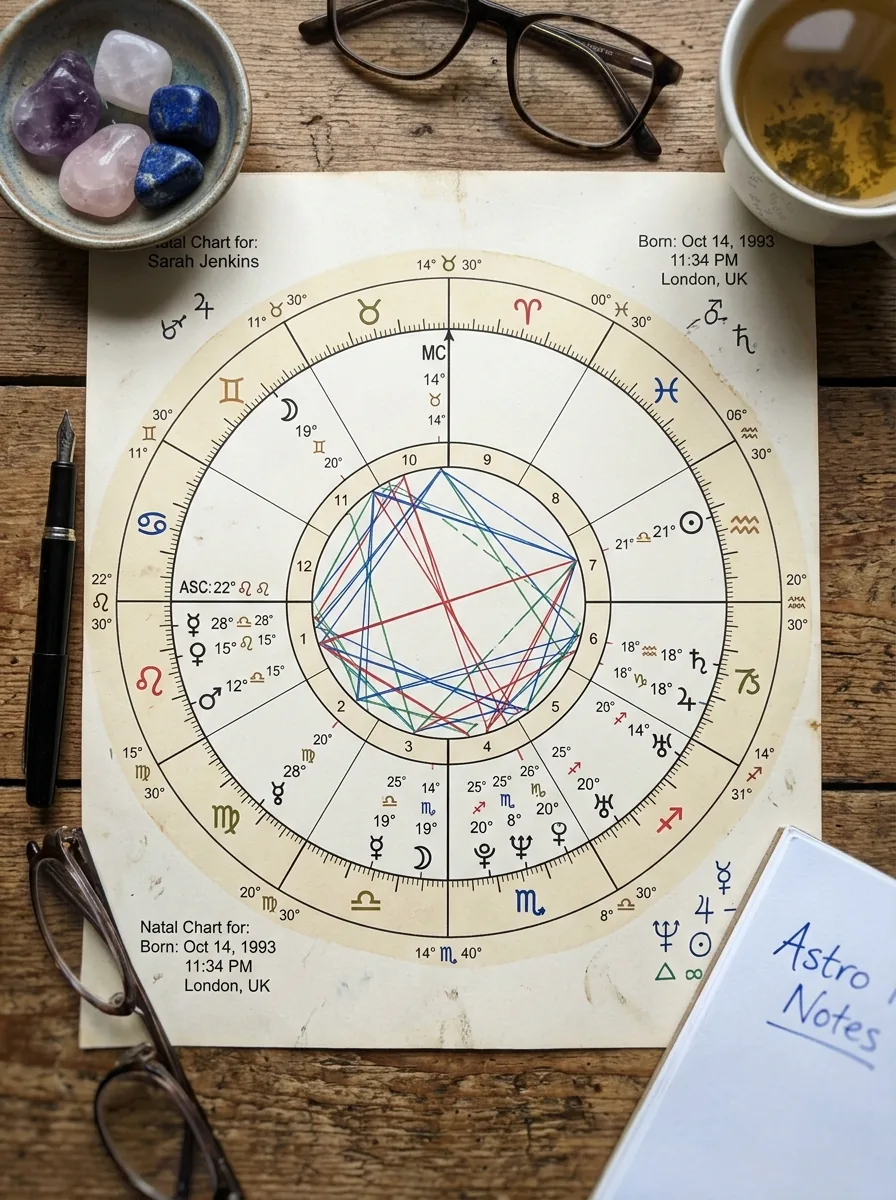 atal Chart for:
Sarah Jenkins
Born: Oct 14, 1993
11:34 PM
London, UK
14° ♉ 30°
11° ♉ 30°
00° ♓ 30°
MC
14°
♉
14°
19°
♊
20°
30°
♊
11°
06°
♒
30°
10
9
11
8
12
7
21° ♎ 21°
22°
♌
30°
ASC: 22° ♌ ♌
20°
30°
28° ♎ 28°
15° ♌ 15°
12° ♎ 15°
1
6
18° ♒ 18°
18° ♑ 18°
20° ♐ 14°
2
5
3
4
15°
♍
30°
20°
♍
28°
25°
♎
19°
14°
♏
19°
25°
♐
20°
25°
♏
8°
26°
♏
20°
25°
♐
20°
14°
♐
31°
20° ♍ 30°
8° ♎ 30°
14° ♏ 40°
Natal Chart for:
Born: Oct 14, 1993
11:34 PM
London, UK
Astro
Notes